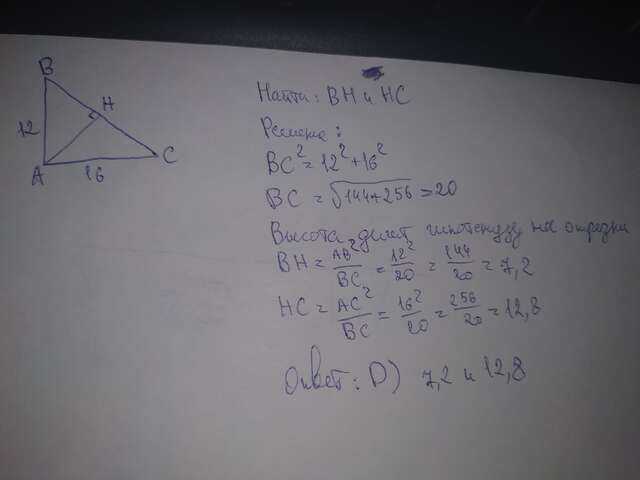 B
H
12
A
16
C
Найти: BH и HC
Решение:
BC² = 12² + 16²
BC = √144+256 = 20
Высота делит гипотенузу на отрезки
BH = AB²/BC = 12²/20 = 144/20 = 7,2
HC = AC²/BC = 16²/20 = 256/20 = 12,8
Ответ: D) 7,2 и 12,8